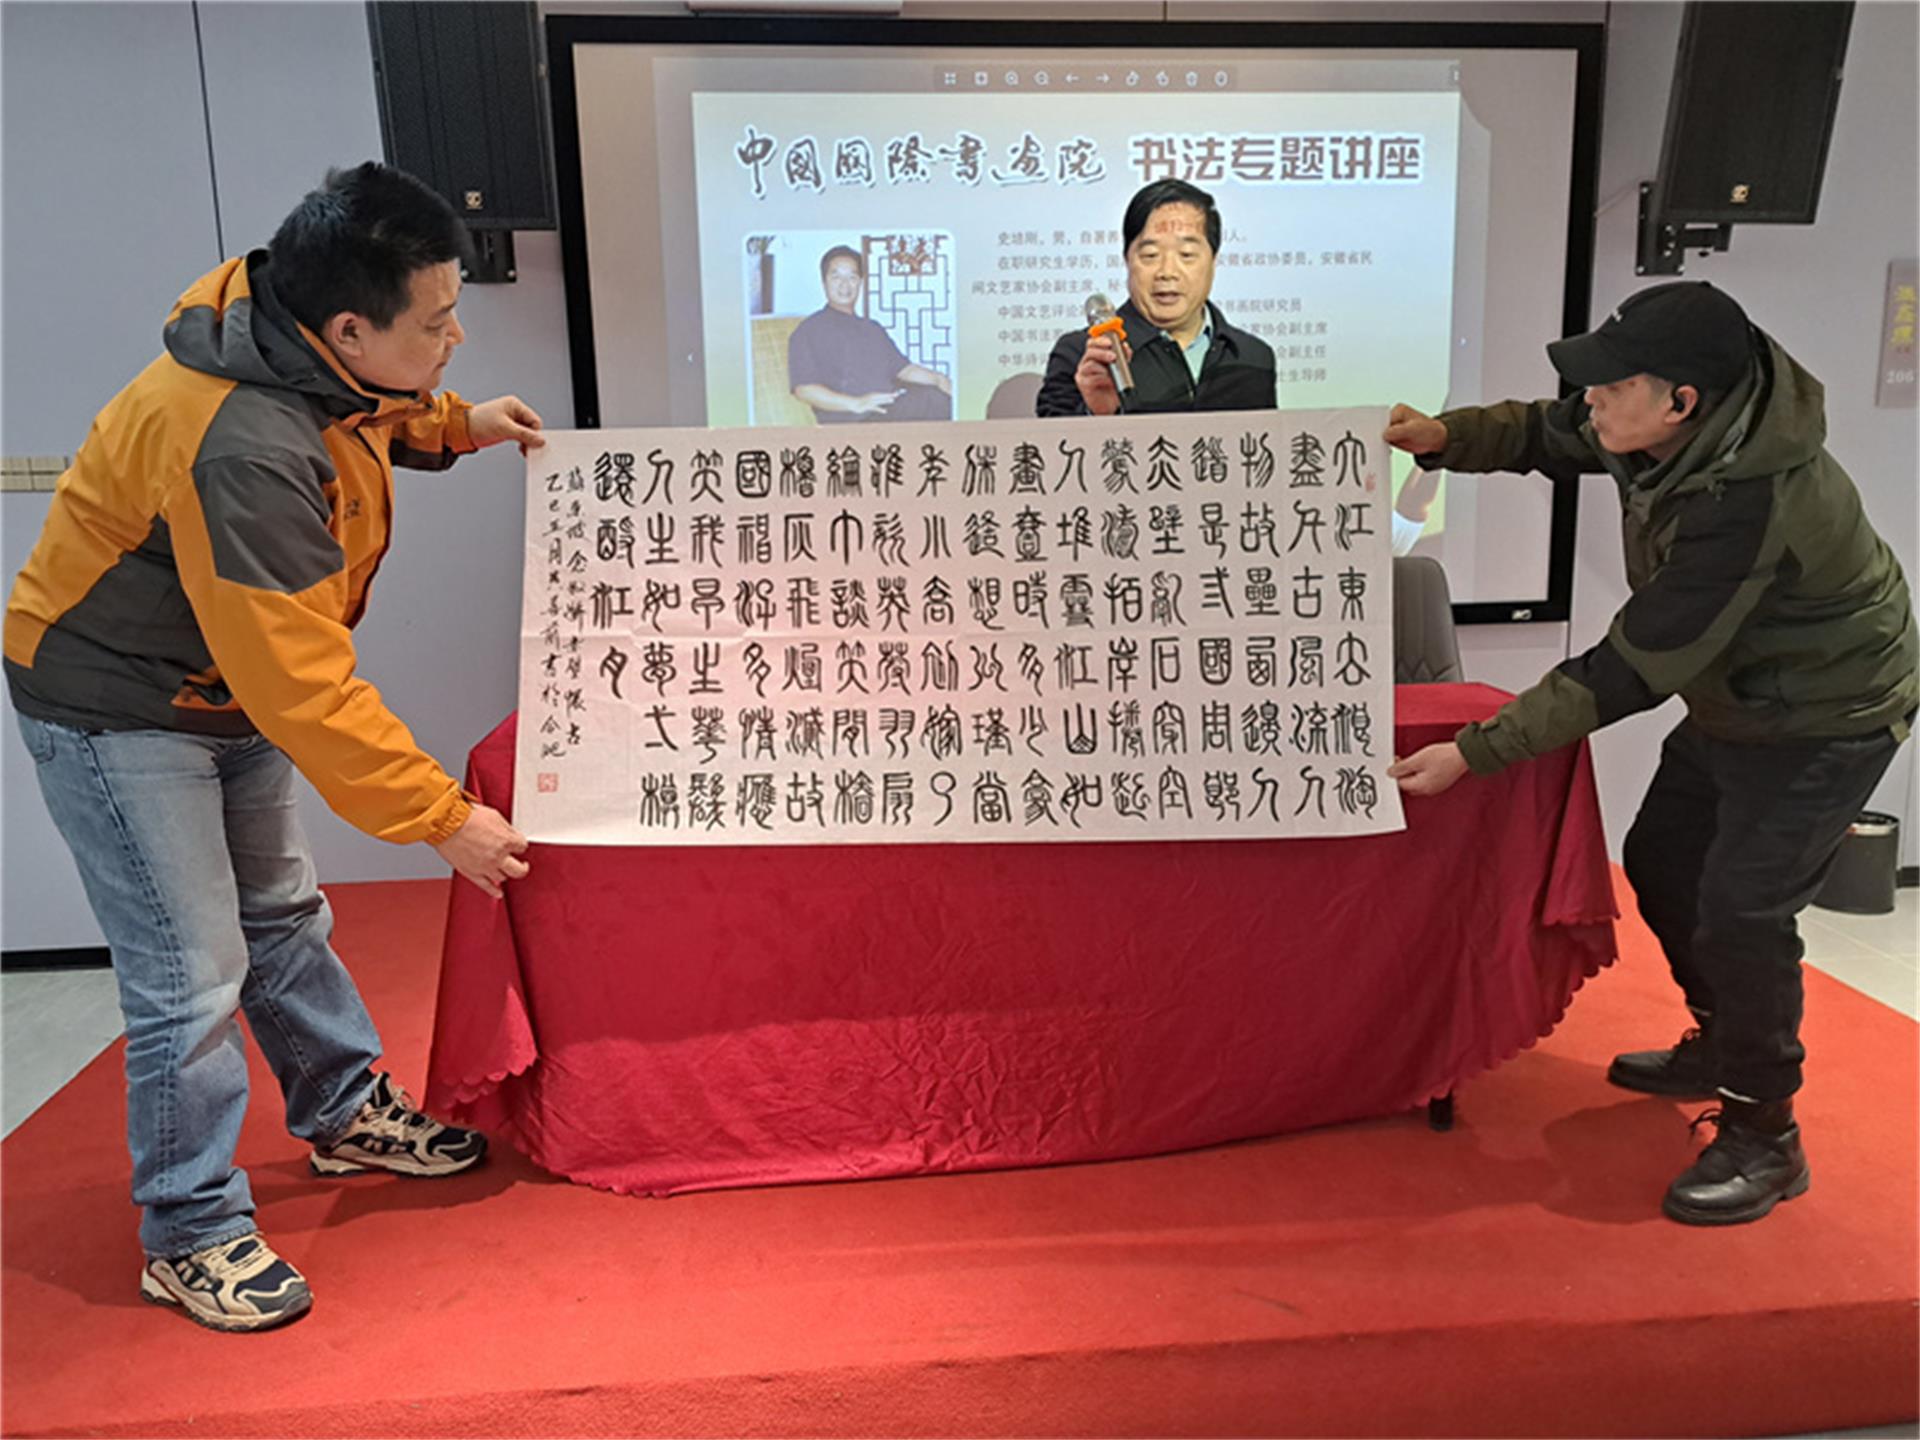 中国国际书画院 书法专题讲座
史培刚，男，自署养 人。
在职研究生学历，国 安徽省政协委员，安徽省民
间文艺家协会副主席、秘 书画院研究员
中国文艺评论 家协会副主席
中国书法家 会副主任
中华诗词 士生导师
大江東去浪淘
盡千古風流人
物故壘西邊人
道是弎國周郎
赤壁亂石穿空
驚濤拍岸捲起
千堆雪江山如
畫壹時多少豪
傑遙想公瑾當
年小喬初嫁了
雄姿英發羽扇
綸巾談笑間檣
櫓灰飛煙滅故
國神遊多情應
笑我早生華髮
人生如夢弌樽
還酹江月
蘇東坡念奴嬌赤壁懷古
乙巳正月 書於合肥
206